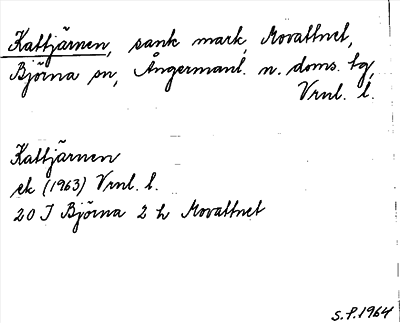 Kattjärnen, sank mark, Movattnet,
Björna sn, Ångermanl. n. doms. tg,
Vrnl. l.
Kattjärnen
ek (1963) Vrnl. l.
20 I Björna 2 h Movattnet
S.P. 1964